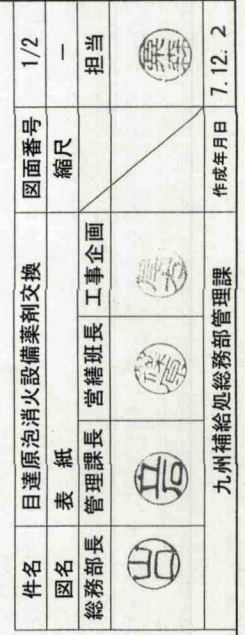 件名 目達原泡消火設備薬剤交換 図面番号 1/2
図名 表紙 縮尺 ー
総務部長 管理課長 営繕班長 工事企画 担当
九州補給処総務部管理課 作成年月日 7.12.2